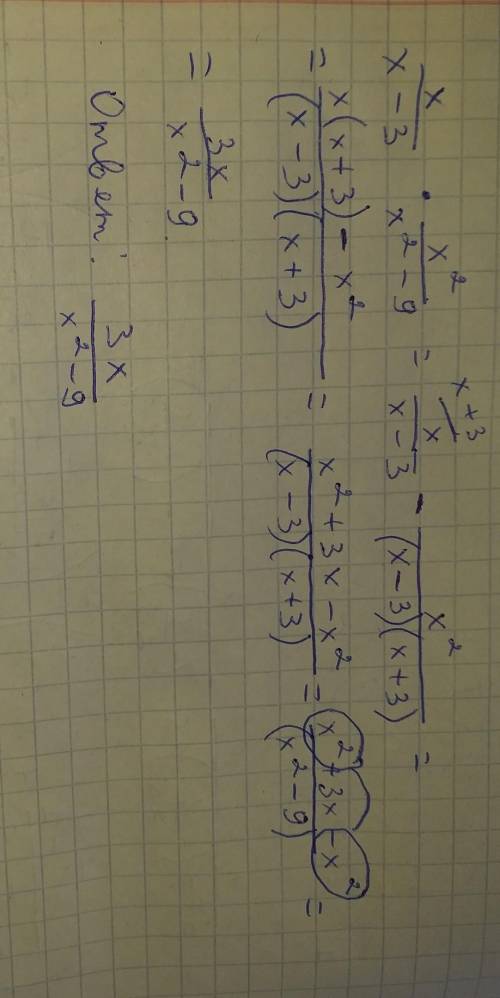 x/(x-3) · x²/(x²-9) = x+3 / x/(x-3) - x²/((x-3)(x+3)) =
= (x(x+3)-x²)/((x-3)(x+3)) = (x²+3x-x²)/((x-3)(x+3)) = (x²+3x-x²)/(x²-9) =
= 3x/(x²-9)
Ответ: 3x/(x²-9)